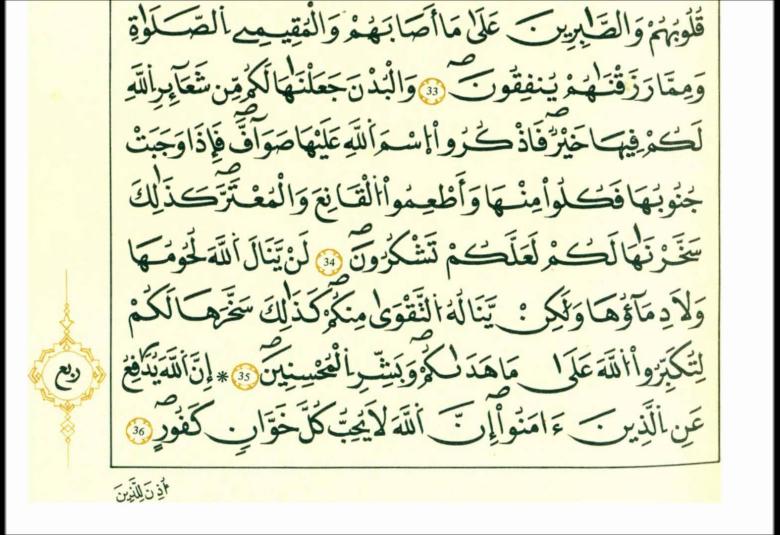 قُلُوبُهُمْ وَالصَّٰبِرِينَ عَلَىٰ مَا أَصَابَهُمْ وَالْمُقِيمِے اِ۬لصَّلَوٰةِ
وَمِمَّا رَزَقْنَٰهُمْ يُنفِقُونَۖ 33 وَالْبُدْنَ جَعَلْنَٰهَا لَكُم مِّن شَعَآئِرِ اِ۬للَّهِ
لَكُمْ فِيهَا خَيْرٌۖ فَاذْكُرُواْ اُ۪سْمَ اَ۬للَّهِ عَلَيْهَا صَوَآفَّۖ فَإِذَا وَجَبَتْ
جُنُوبُهَا فَكُلُواْ مِنْهَا وَأَطْعِمُواْ اُ۬لْقَانِعَ وَالْمُعْتَرَّۖ كَذَٰلِكَ
سَخَّرْنَٰهَا لَكُمْ لَعَلَّكُمْ تَشْكُرُونَۖ 34 لَنْ يَّنَالَ اَ۬للَّهَ لُحُومُهَا
وَلَا دِمَآؤُهَا وَلَٰكِنْ يَّنَالُهُ اُ۬لتَّقْوَىٰ مِنكُمْۖ كَذَٰلِكَ سَخَّرَهَا لَكُمْ
لِتُكَبِّرُواْ اُ۬للَّهَ عَلَىٰ مَا هَدَىٰكُمْۖ وَبَشِّرِ اِ۬لْمُحْسِنِينَۖ 35 * إِنَّ اَ۬للَّهَ يُدَٰفِعُ
عَنِ اِ۬لذِينَ ءَامَنُواْۖ إِنَّ اَ۬للَّهَ لَا يُحِبُّ كُلَّ خَوَّانٖ كَفُورٍۖ 36
ربع
اُذِنَ لِلذِينَ